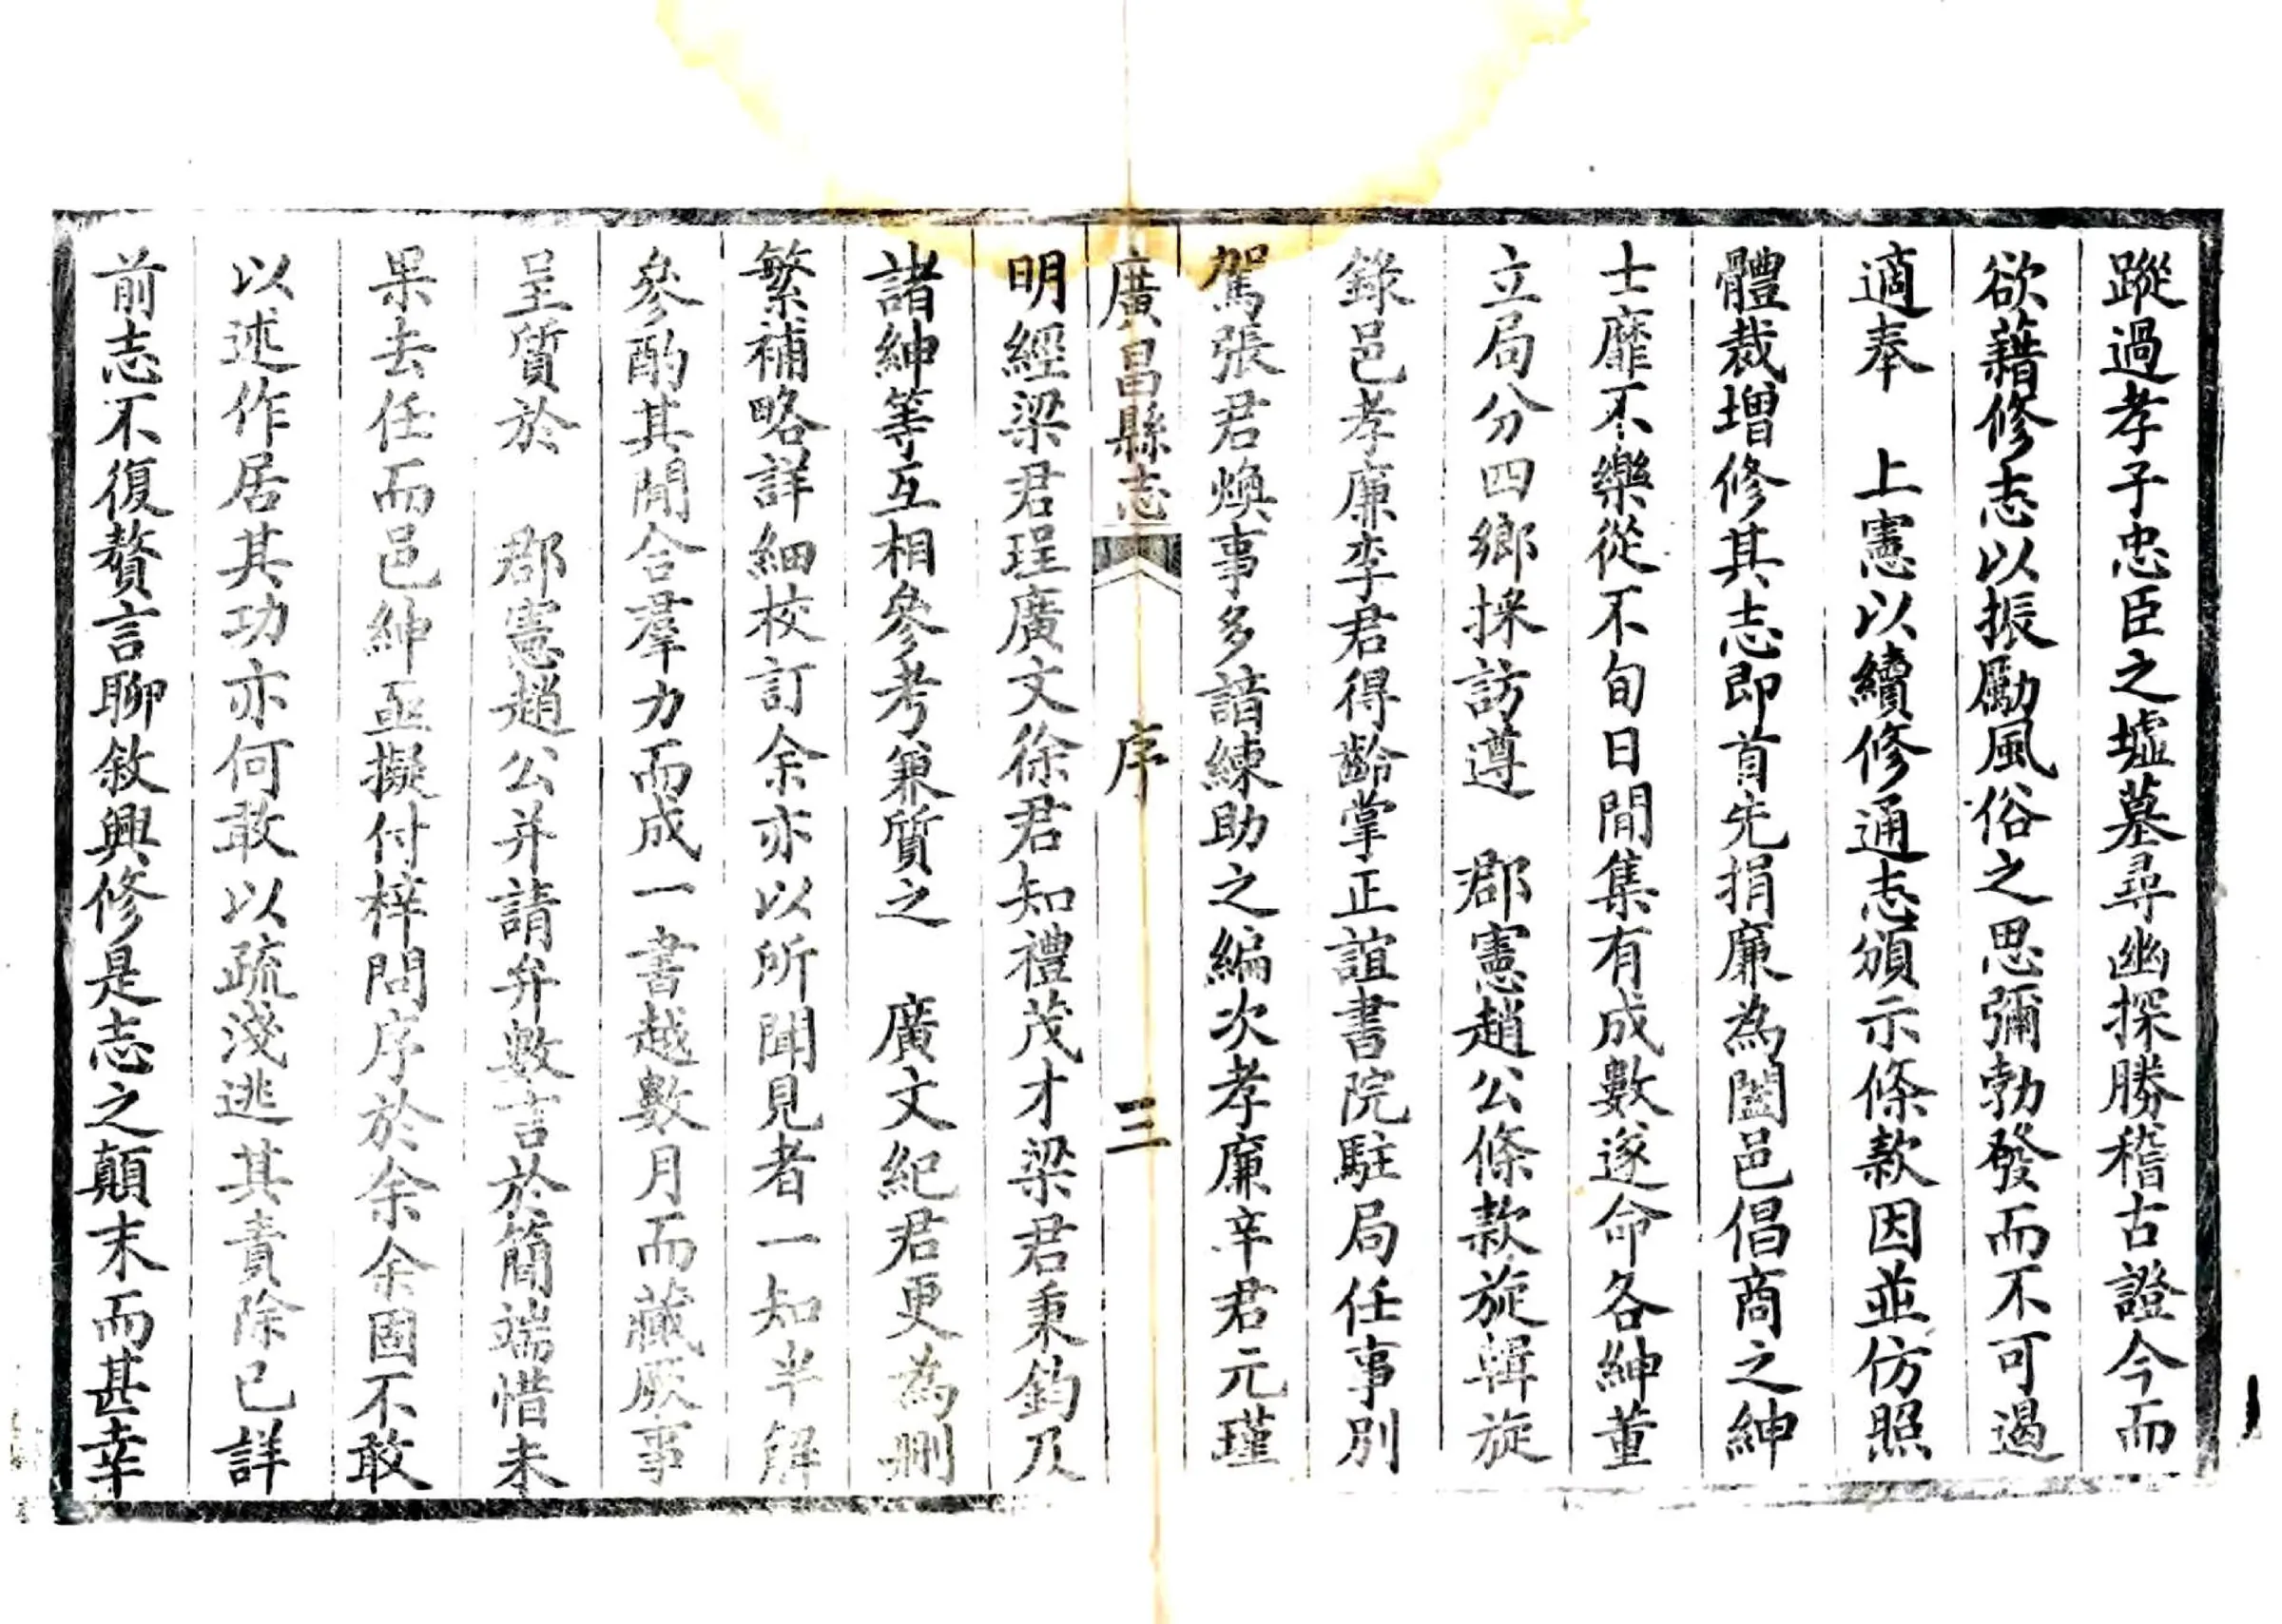 蹤過孝子忠臣之墟墓尋幽探勝稽古證今而
欲藉修志以振勵風俗之思彌勃發而不可遏
適奉　上憲以續修通志頒示條款因並仿照
體裁增修其志即首先捐廉為闔邑倡商之紳
士靡不樂從不旬日間集有成數遂命各紳董
立局分四鄉採訪遵　郡憲趙公條款旋輯旋
錄邑孝廉李君得齡掌正誼書院駐局任事別
駕張君煥事多諳練助之編次孝廉辛君元瑾
廣昌縣志　序　三
明經梁君珵廣文徐君知禮茂才梁君秉鈞及
諸紳等互相參考兼質之　廣文紀君更為刪
繁補略詳細校訂余亦以所聞見者一知半解
參酌其間合羣力而成一書越數月而蕆厥事
呈質於　郡憲趙公并請弁數言於簡端惜未
果去任而邑紳亟擬付梓問序於余余固不敢
以述作居其功亦何敢以疏淺逃其責除已詳
前志不復贅言聊敘興修是志之顛末而甚幸